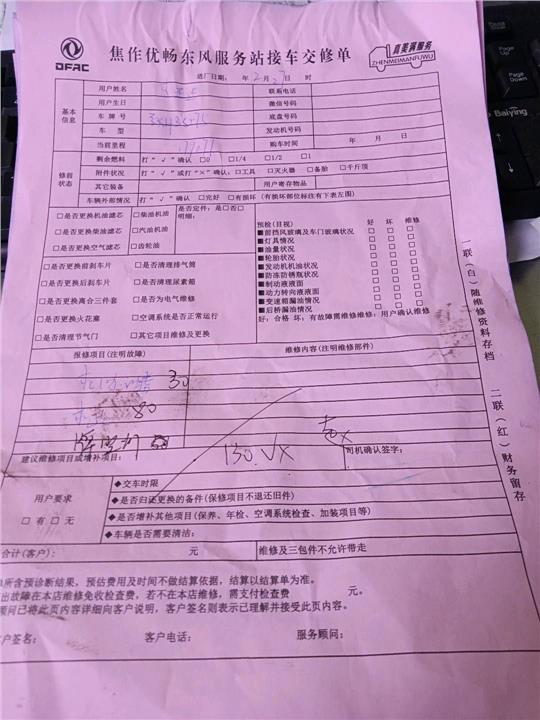 DFAC
焦作优畅东风服务站接车交修单
真美满服务
ZHENMEIMANFUWU
进厂日期： 年 2 月 日 时
基本信息
用户姓名 联系电话
用户生日 微信号码
车 牌 号 底盘号码
车 型 发动机号码
当前里程 购车时间 年 月 日
修前状态
剩余燃料 打“√”确认 □0 □1/4 □1/2 □1
附件状况 打“√”或打“×”确认：□工具 □灭火器 □备胎 □千斤顶
其它装备 用户寄存物品
车辆外部情况 打“√”确认 □完好 □有损坏（有损坏部位标注有下表左图）
□是否更换机油滤芯 □柴油机油
□是否更换柴油滤芯 □汽油机油
□是否更换空气滤芯 □齿轮油
是否定件：是□否□
明细：
预检(目视) 好 坏 维修
■前挡风玻璃及车门玻璃状况 □ □ □
■灯具情况 □ □ □
■油量状况 □ □ □
■轮胎状况 □ □ □
■发动机机油状况 □ □ □
■防冻防锈瓶状况 □ □ □
■制动液液面 □ □ □
■动力转向液液面 □ □ □
■变速箱漏油情况 □ □ □
■后桥漏油情况 □ □ □
好：合格 坏：有故障需维修维修：用户确认维修
□是否更换前刹车片 □是否清理排气筒
□是否更换后刹车片 □是否清理尿素箱
□是否更换离合三件套 □是否为电气维修
□是否更换火花塞 □空调系统是否正常运行
□是否清理节气门 □其它项目维修及更换
报修项目(注明故障) 维修内容(注明维修部件)
30
80
130
建议维修项目或增补项目： 司机确认签字：
用户要求
□ 有 □ 无
◆交车时限
◆是否归还更换的备件(保修项目不退还旧件)
◆是否增补其他项目(保养、年检、空调系统检查、加装项目等)
◆车辆是否需要清洁：
合计(客户)： 元 维修及三包件不允许带走
所含预诊断结果，预估费用及时间不做结算依据，结算以结算单为准。
出故障在本店维修免收检查费，若不在本店维修，需支付检查费 元。
顾问已将此页内容详细向客户说明，客户签名则表示已理解并接受此页内容。
客户签名： 客户电话： 服务顾问：
一联（白）随维修资料存档
二联（红）财务留存